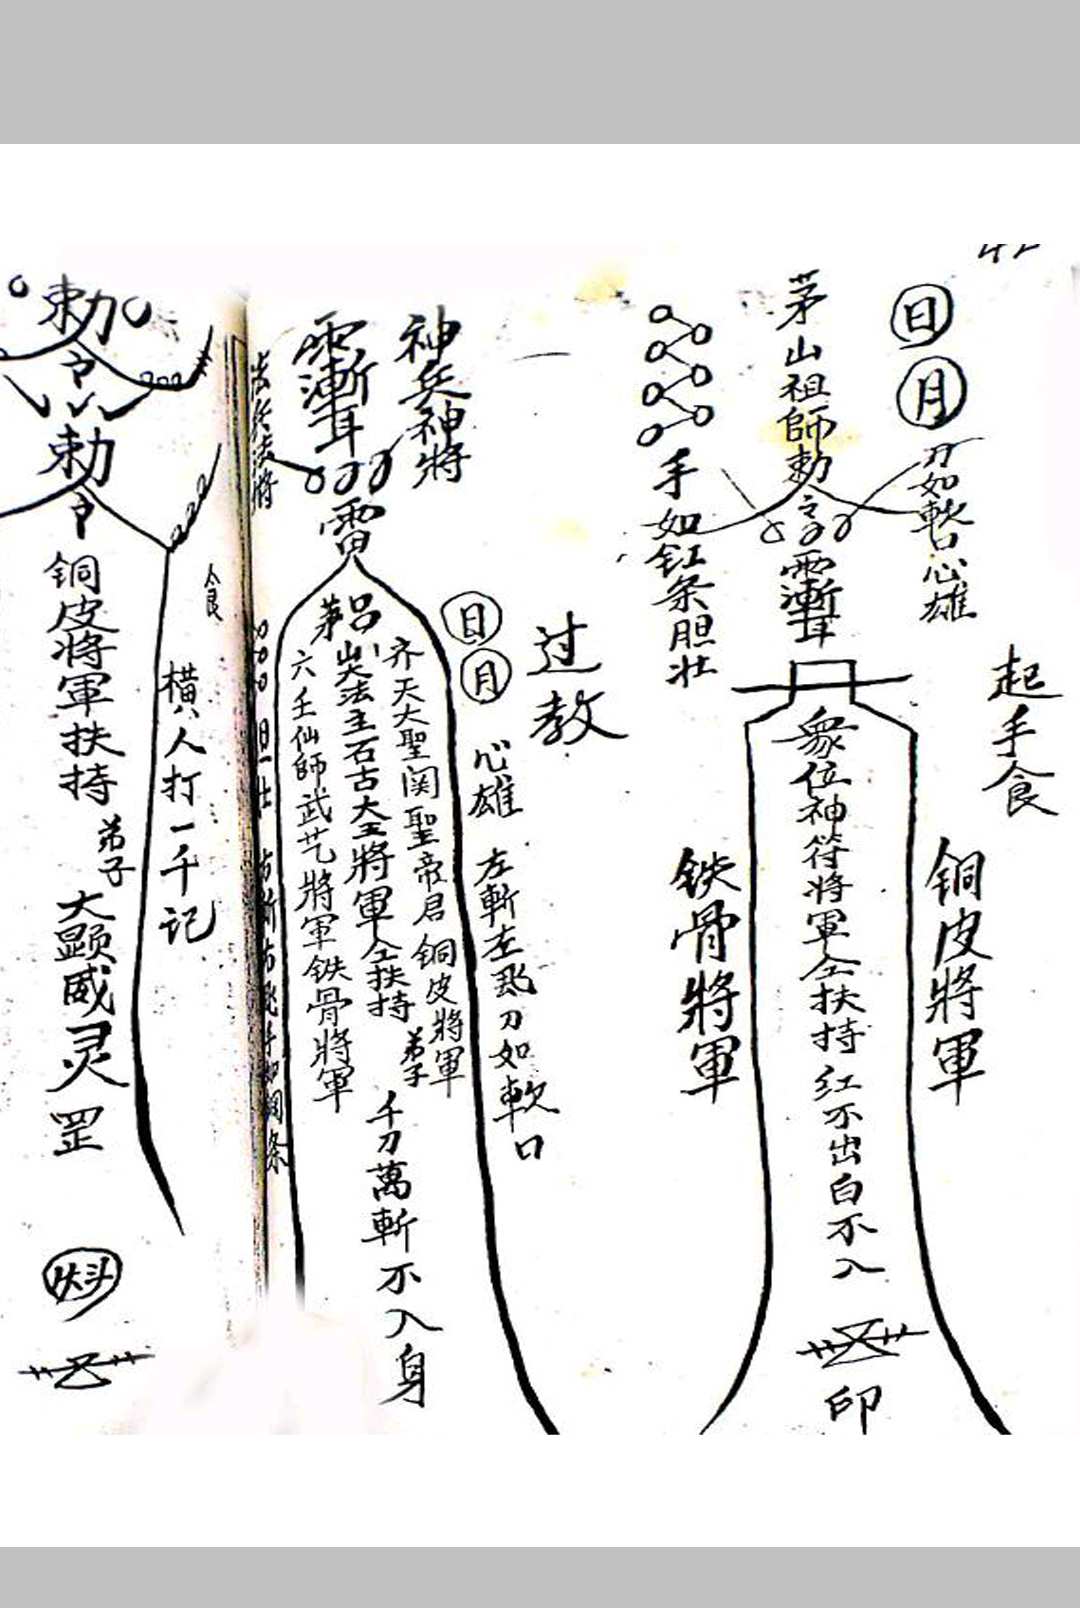 起手食
日
月
刀如軟口心雄
銅皮將軍
茅山祖師勅令
衆位神符將軍仝扶持紅不出白不入
印
手如釭条胆壮
鉄骨將軍
过教
日
月
心雄
左斬左飛刀如軟口
神兵神將
雷
齐天大聖関聖帝君銅皮將軍
吕
茅山
法主石古大王將軍仝扶持
弟子
千刀萬斬不入身
六壬仙師武艺將軍鉄骨將軍
食
横人打一千记
勅令
勅令
銅皮將軍扶持
弟子
大顕威灵罡